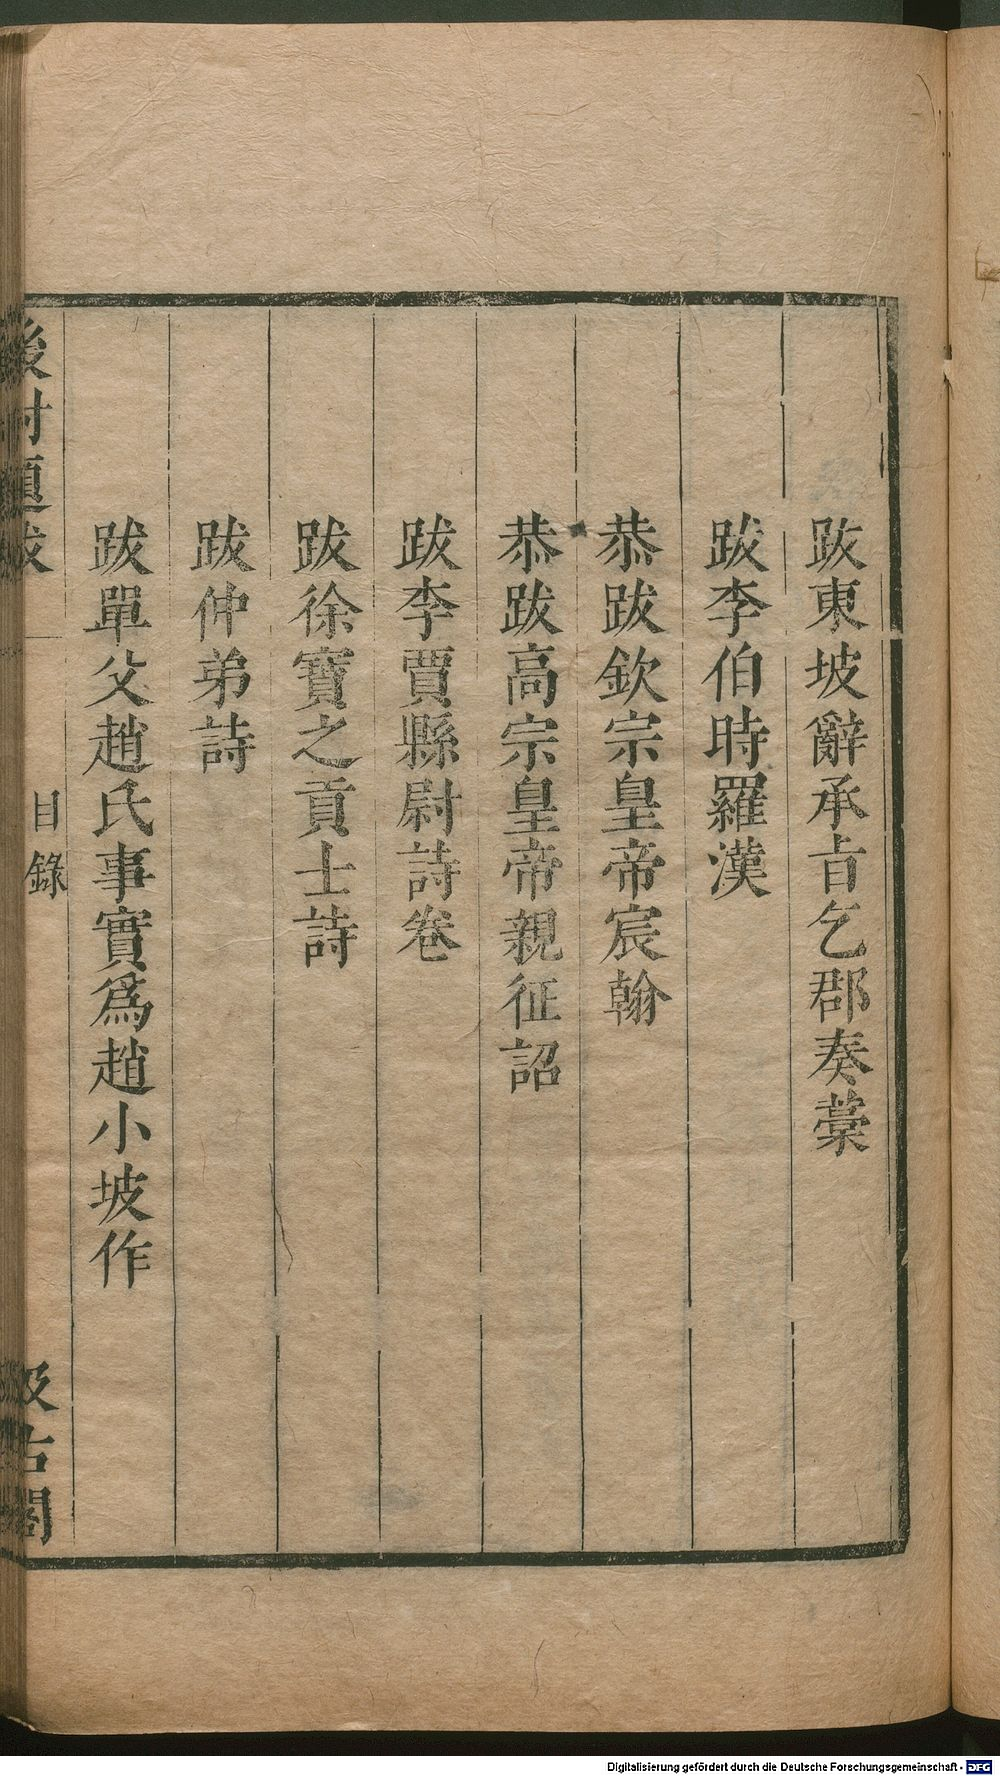 跋東坡辭承旨乞郡奏藁
跋李伯時羅漢
恭跋欽宗皇帝宸翰
恭跋高宗皇帝親征詔
跋李賈縣尉詩卷
跋徐寶之貢士詩
跋仲弟詩
跋單父趙氏事實爲趙小坡作
後村題跋
目錄
汲古閣
Digitalisierung gefördert durch die Deutsche Forschungsgemeinschaft - DFG